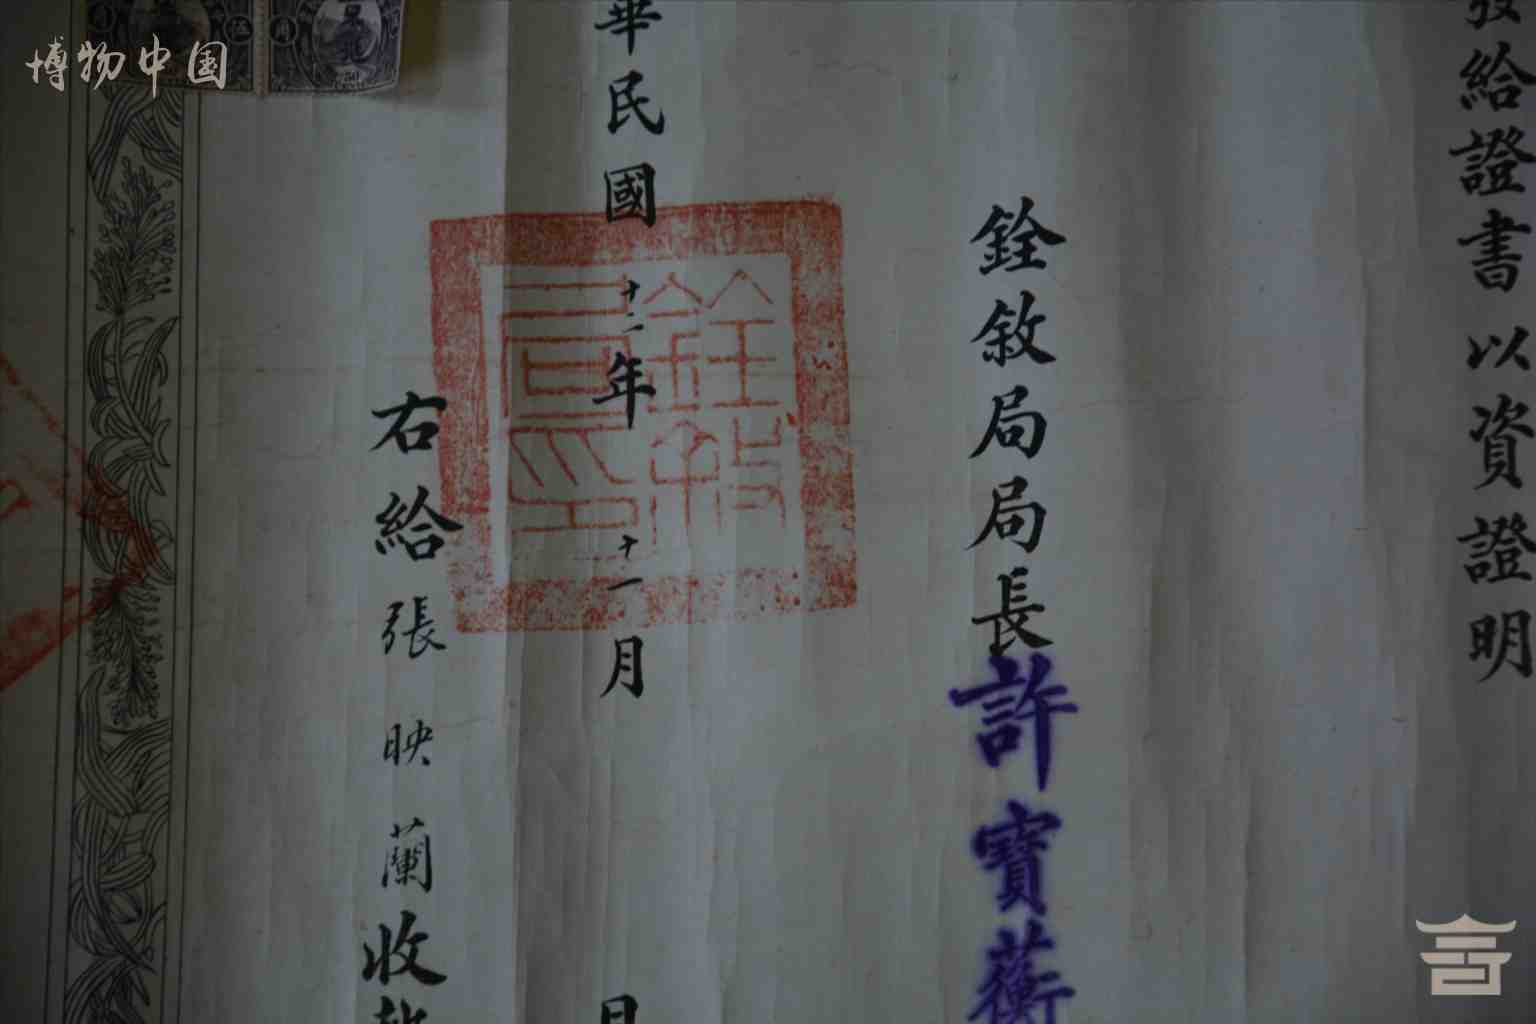 博物中国
發給證書以資證明
銓敘局局長許寶蘅
華民國十二年十一月 日
右給張映蘭收執
銓敘局印